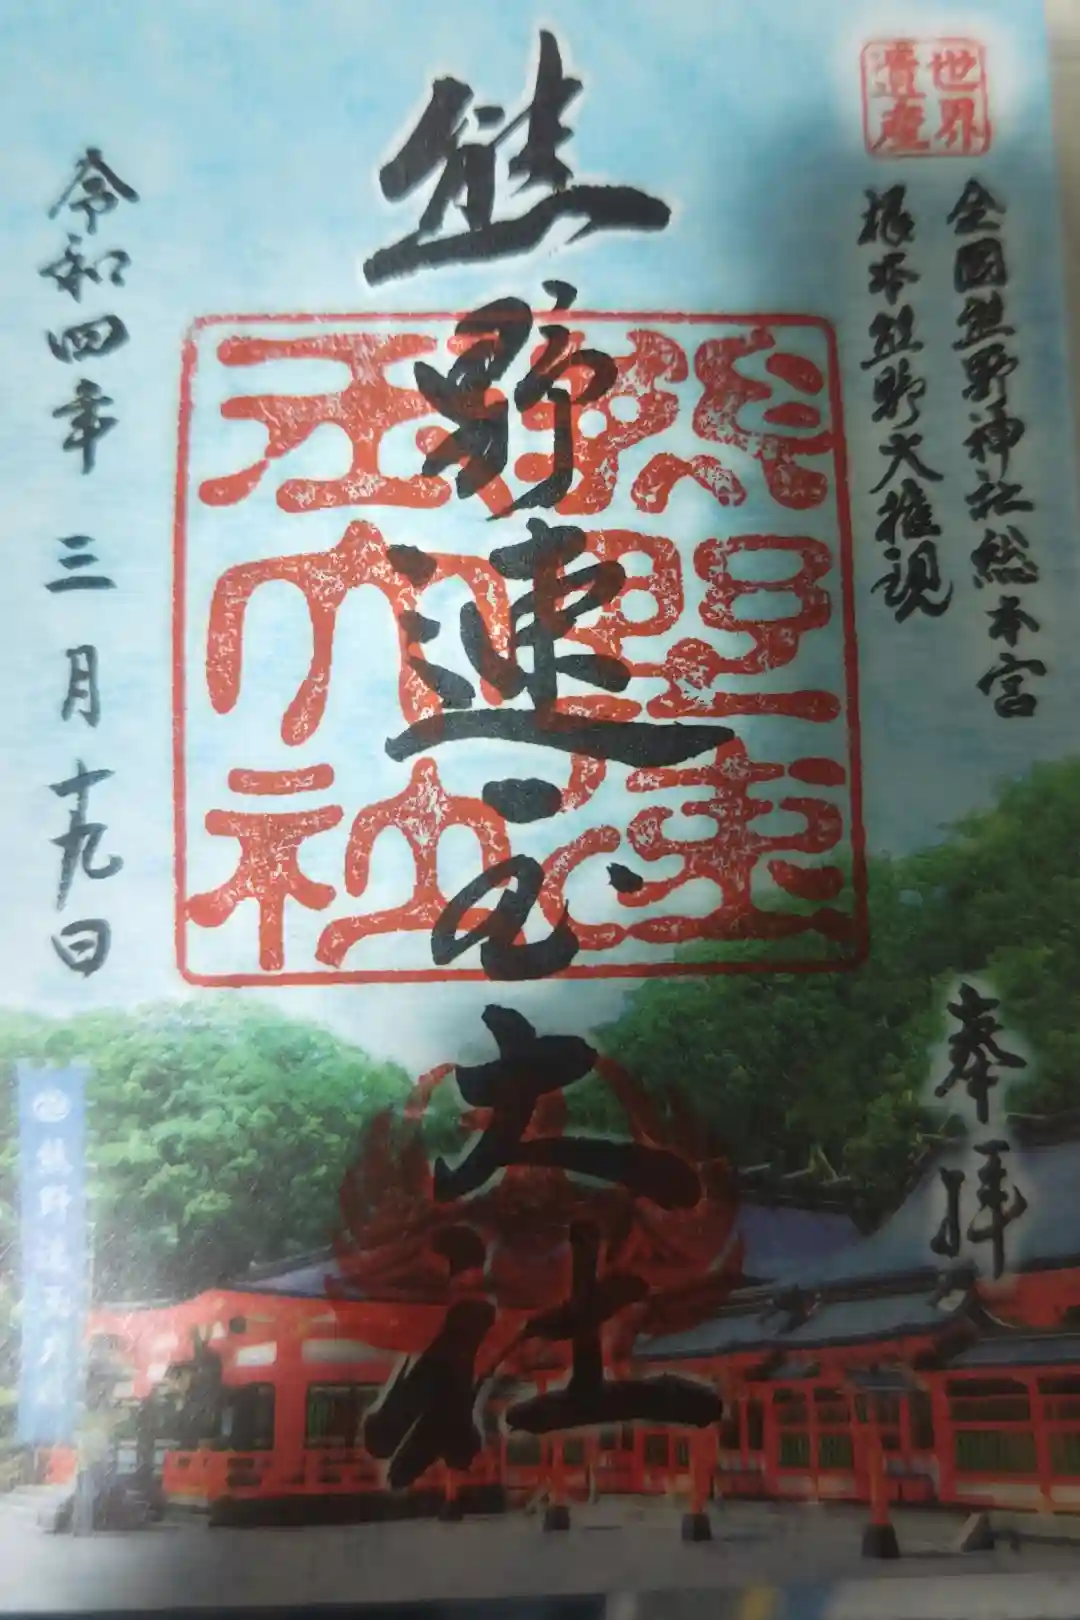 世界
遺産
全国熊野神社総本宮
根本熊野大権現
奉拝
熊野速玉大社
熊野速玉大社
令和四年 三月 十九日
熊野